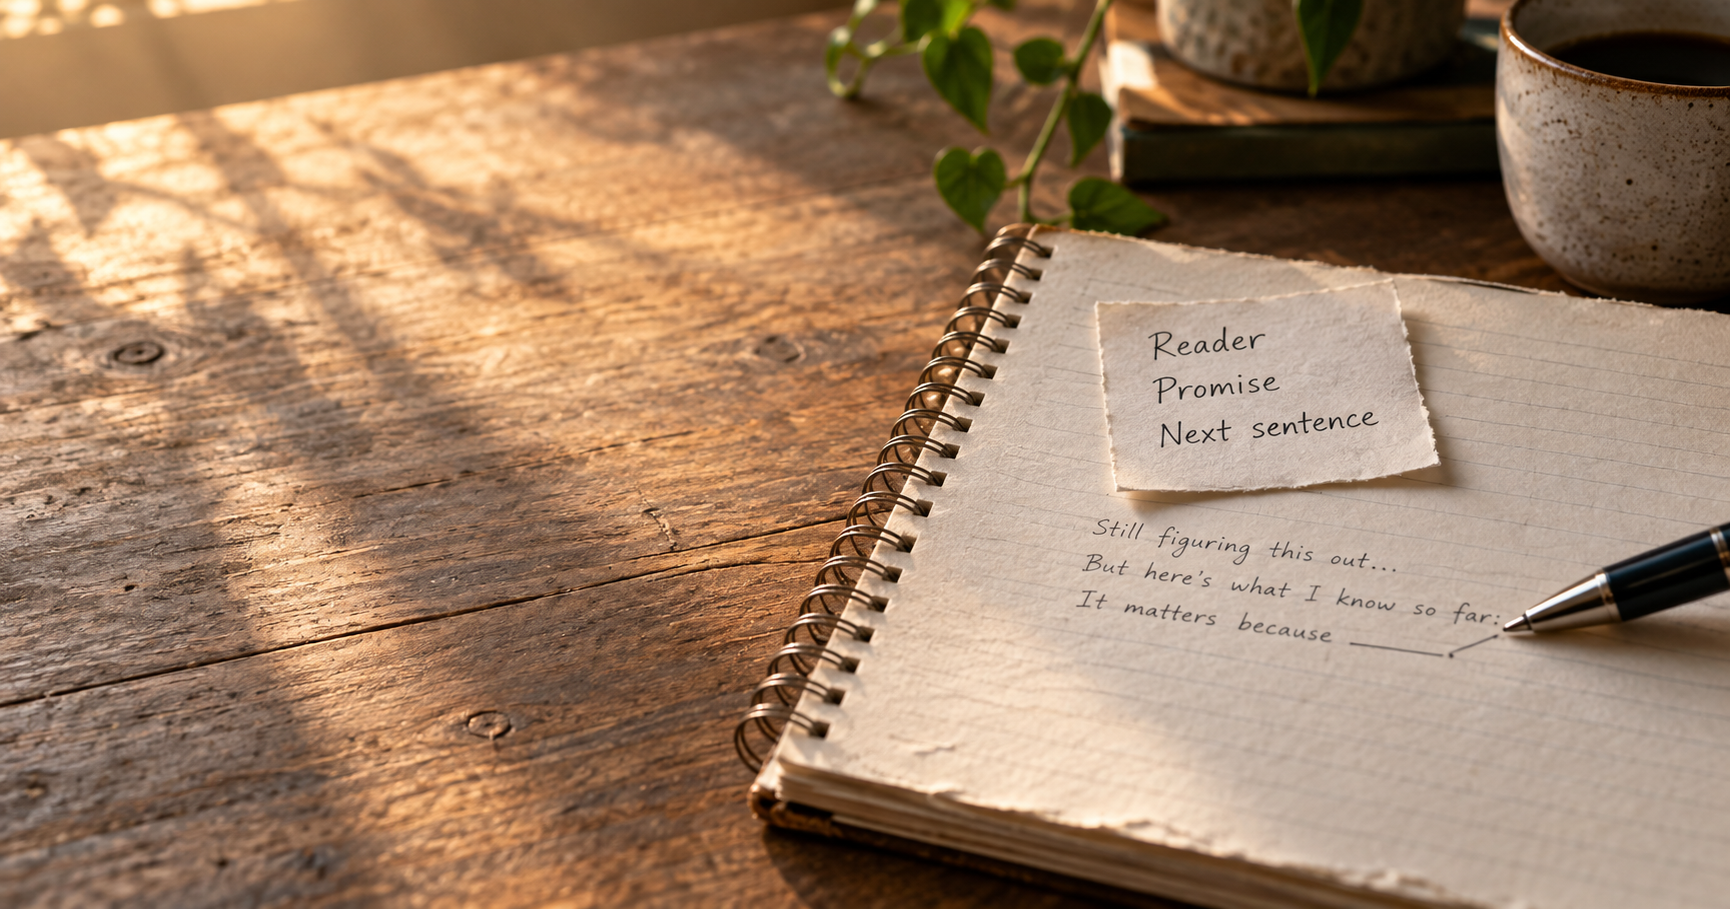 Reader
Promise
Next sentence
Still figuring this out...
But here's what I know so far:
It matters because